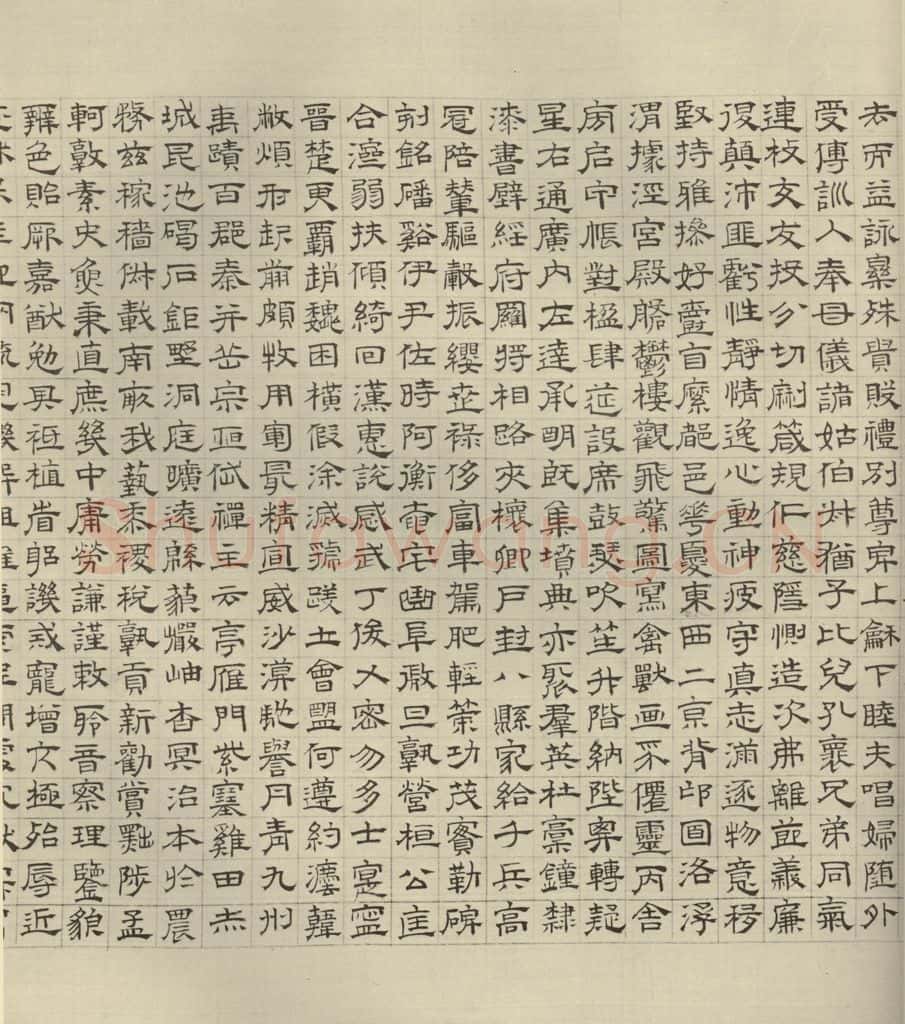 去而益詠樂殊貴賤禮別尊卑上龢下睦夫唱婦隨外
受傅訓入奉母儀諸姑伯叔猶子比兒孔褱兄弟同氣
連枝交友投分切劘箴規仁慈隱惻造次弗離節義廉
退顛沛匪虧性靜情逸心動神疲守真志滿逐物意移
堅持雅操好爵自縻都邑華夏東西二京背邙面洛浮
渭據涇宮殿盤鬱樓觀飛驚圖寫禽獸画采僊靈丙舍
啟甲帳對楹肆筵設席鼓瑟吹笙升階納陛弁轉疑
星右通廣內左達承明既集墳典亦聚羣英杜稾鐘隸
漆書壁經府羅將相路夾槐卿戶封八縣家給千兵高
冠陪輦驅轂振纓世祿侈富車駕肥輕策功茂實勒碑
刻銘磻谿伊尹佐時阿衡奄宅曲阜微旦孰營桓公匡
合濟弱扶傾綺回漢惠說感武丁俊乂密勿多士寔寧
晉楚更霸趙魏困橫假途滅虢踐土會盟何遵約法韓
弊煩刑起翦頗牧用軍最精宣威沙漠馳譽丹青九州
禹蹟百郡秦并岳宗恒岱禪主云亭雁門紫塞雞田赤
城昆池碣石鉅野洞庭曠遠緜邈巖岫杳冥治本於農
務茲稼穡俶載南畝我藝黍稷稅孰貢新勸賞黜陟孟
軻敦素史魚秉直庶幾中庸勞謙謹敕聆音察理鑒貌
辨色貽厥嘉猷勉其祗植省躬譏誡寵增亢極殆辱近
Shufawang.CN